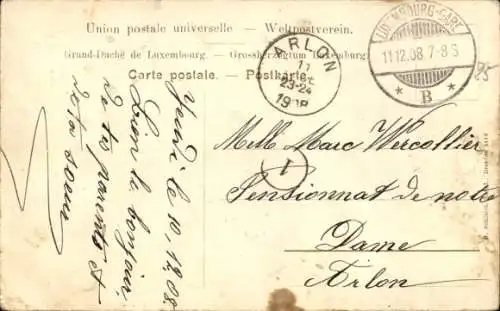 Union postale universelle. — Weltpostverein.
Grand-Duché de Luxembourg. — Grossherzogtum Luxemburg.
Carte postale. — Postkarte.
ARLON
11
23-24
1908
LUXEMBOURG-GARE
11.12.08. 7-8 S
* B *
95
1
Melle Marc Wercollier
Pensionnat de notre
Dame
Arlon
Jeudi le 10, 12, 08
Bien le bonjour
de tes parents et
de ta soeur